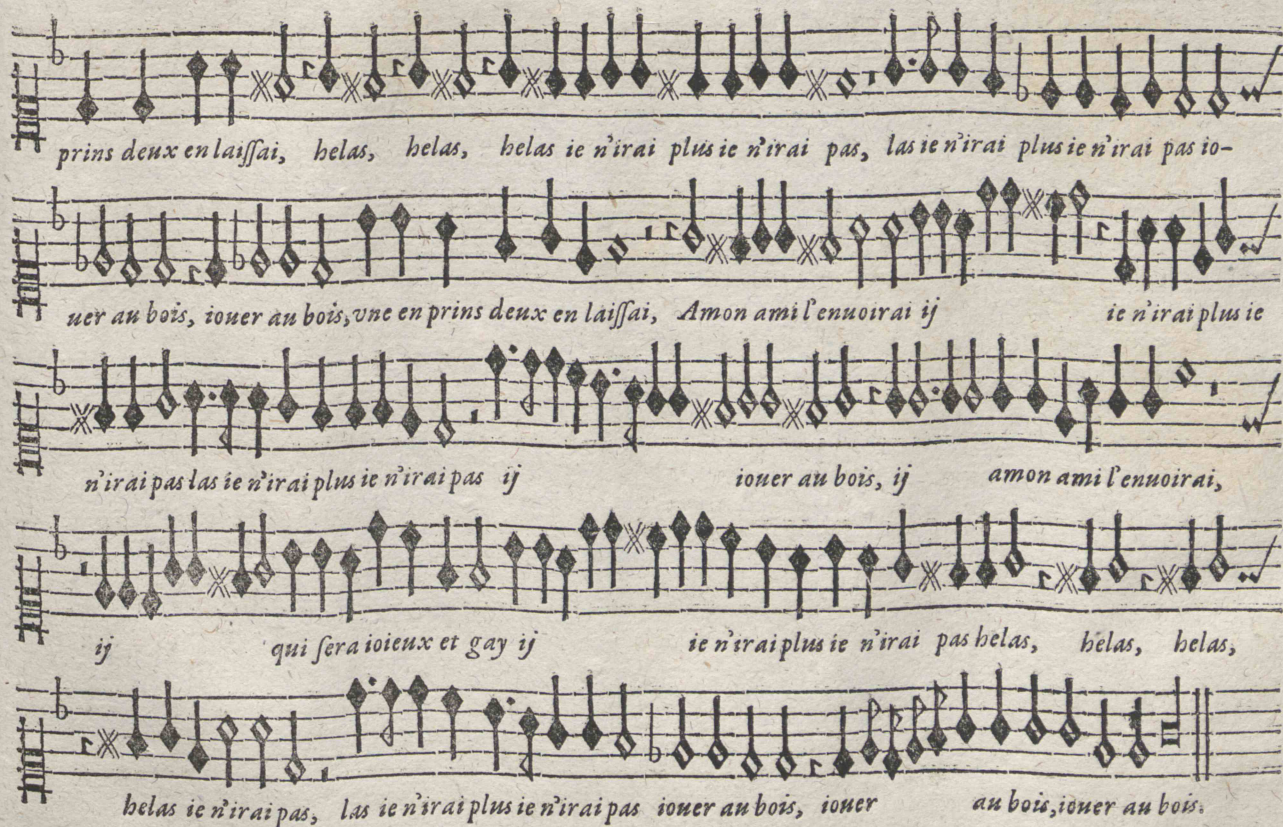 prins deux en laiſſai, helas, helas, helas ie n'irai plus ie n'irai pas, las ie n'irai plus ie n'irai pas io-
uer au bois, iouer au bois, vne en prins deux en laiſſai, Amon ami l'enuoirai ij ie n'irai plus ie
n'irai pas las ie n'irai plus ie n'irai pas ij iouer au bois, ij amon ami l'enuoirai,
ij qui ſera ioieux et gay ij ie n'irai plus ie n'irai pas helas, helas, helas,
helas ie n'irai pas, las ie n'irai plus ie n'irai pas iouer au bois, iouer au bois, iouer au bois.